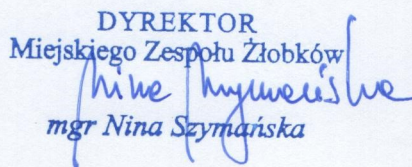 DYREKTOR
Miejskiego Zespołu Żłobków
Nina Szymańska
mgr Nina Szymańska